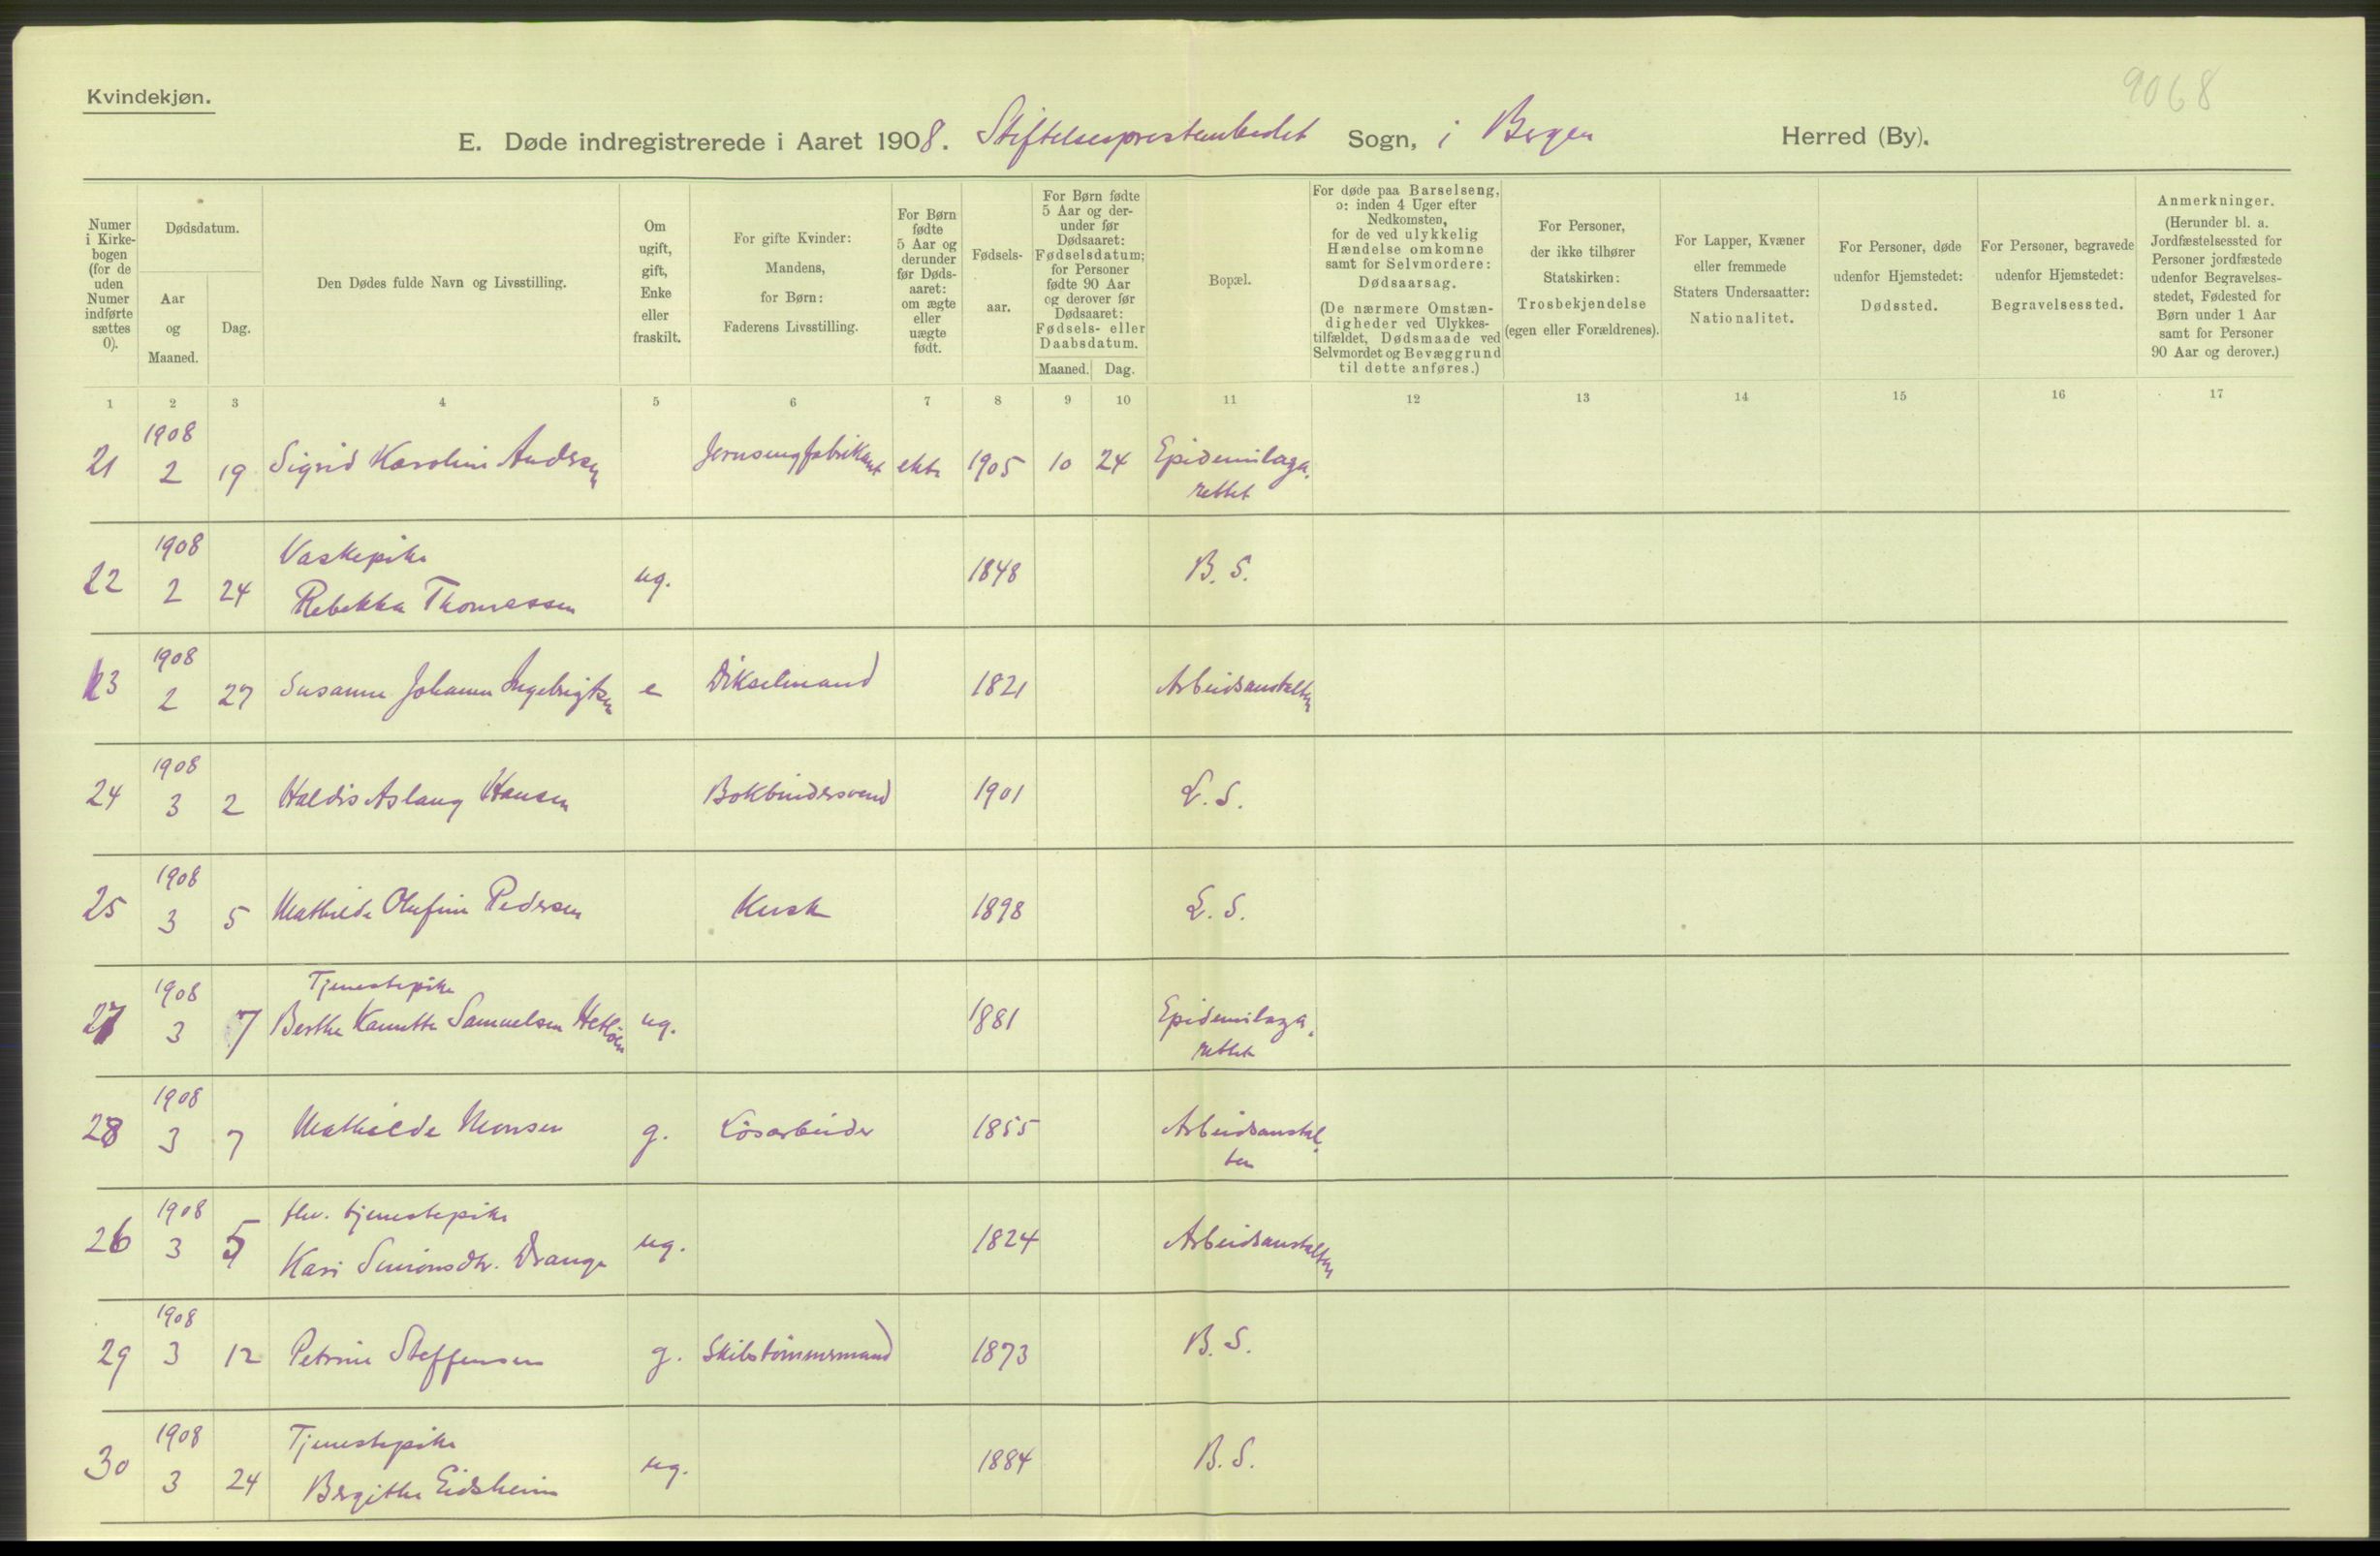 9068
Kvindekjøn.
E. Døde indregistrerede i Aaret 1908. Stiftelsesprestembedet Sogn, i Bergen Herred (By).
Numer i Kirke-bogen (for de uden Numer indførte sættes 0).
Dødsdatum.
Aar og Maaned.
Dag.
Den Dødes fulde Navn og Livsstilling.
Om ugift, gift, Enke eller fraskilt.
For gifte Kvinder: Mandens, for Børn: Faderens Livsstilling.
For Børn fødte 5 Aar og derunder før Døds-aaret: om ægte eller uægte født.
Fødsels-aar.
For Børn fødte 5 Aar og der-under før Dødsaaret: Fødselsdatum; for Personer fødte 90 Aar og derover før Dødsaaret: Fødsels- eller Daabsdatum.
Maaned. Dag.
Bopæl.
For døde paa Barselseng, ɔ: inden 4 Uger efter Nedkomsten, for de ved ulykkelig Hændelse omkomne samt for Selvmordere: Dødsaarsag.
(De nærmere Omstæn-digheder ved Ulykkes-tilfældet, Dødsmaade ved Selvmordet og Bevæggrund til dette anføres.)
For Personer, der ikke tilhører Statskirken: Trosbekjendelse (egen eller Forældrenes).
For Lapper, Kvæner eller fremmede Staters Undersaatter: Nationalitet.
For Personer, døde udenfor Hjemstedet: Dødssted.
For Personer, begravede udenfor Hjemstedet: Begravelsessted.
Anmerkninger.
(Herunder bl. a. Jordfæstelsessted for Personer jordfæstede udenfor Begravelses-stedet, Fødested for Børn under 1 Aar samt for Personer 90 Aar og derover.)
1 2 3 4 5 6 7 8 9 10 11 12 13 14 15 16 17
1908
21 2 19 Sigrid Karoline Andersen Jernsengfabrikant ekte 1905 10 24 Epidemilaza-
rettet
1908 Vaskepike
22 2 24 Rebekka Thomassen ug. 1848 B. S.
1908
23 2 27 Susanne Johanne Ingebrigtsen e Dikselmand 1821 Arbeidsanstalten
1908
24 3 2 Haldis Aslaug Hansen Bokbindersvend 1901 L. S.
1908
25 3 5 Mathilde Olufine Pedersen Kusk 1898 L. S.
1908 Tjenestepike
27 3 7 Berthe Kanutte Samuelsen ug. 1881 Epidemilaza-
rettet
1908
28 3 7 Mathilde Monsen g. Løsarbeider 1855 Arbeidsanstal-
ten
1908 fhv. tjenestepike
26 3 5 Kari Simonsdtr. Drange ug. 1824 Arbeidsanstalten
1908
29 3 12 Petrine Steffensen g. Skibstømmermand 1873 B. S.
1908 Tjenestepike
30 3 24 Bergithe Eidsheim ug. 1884 B. S.